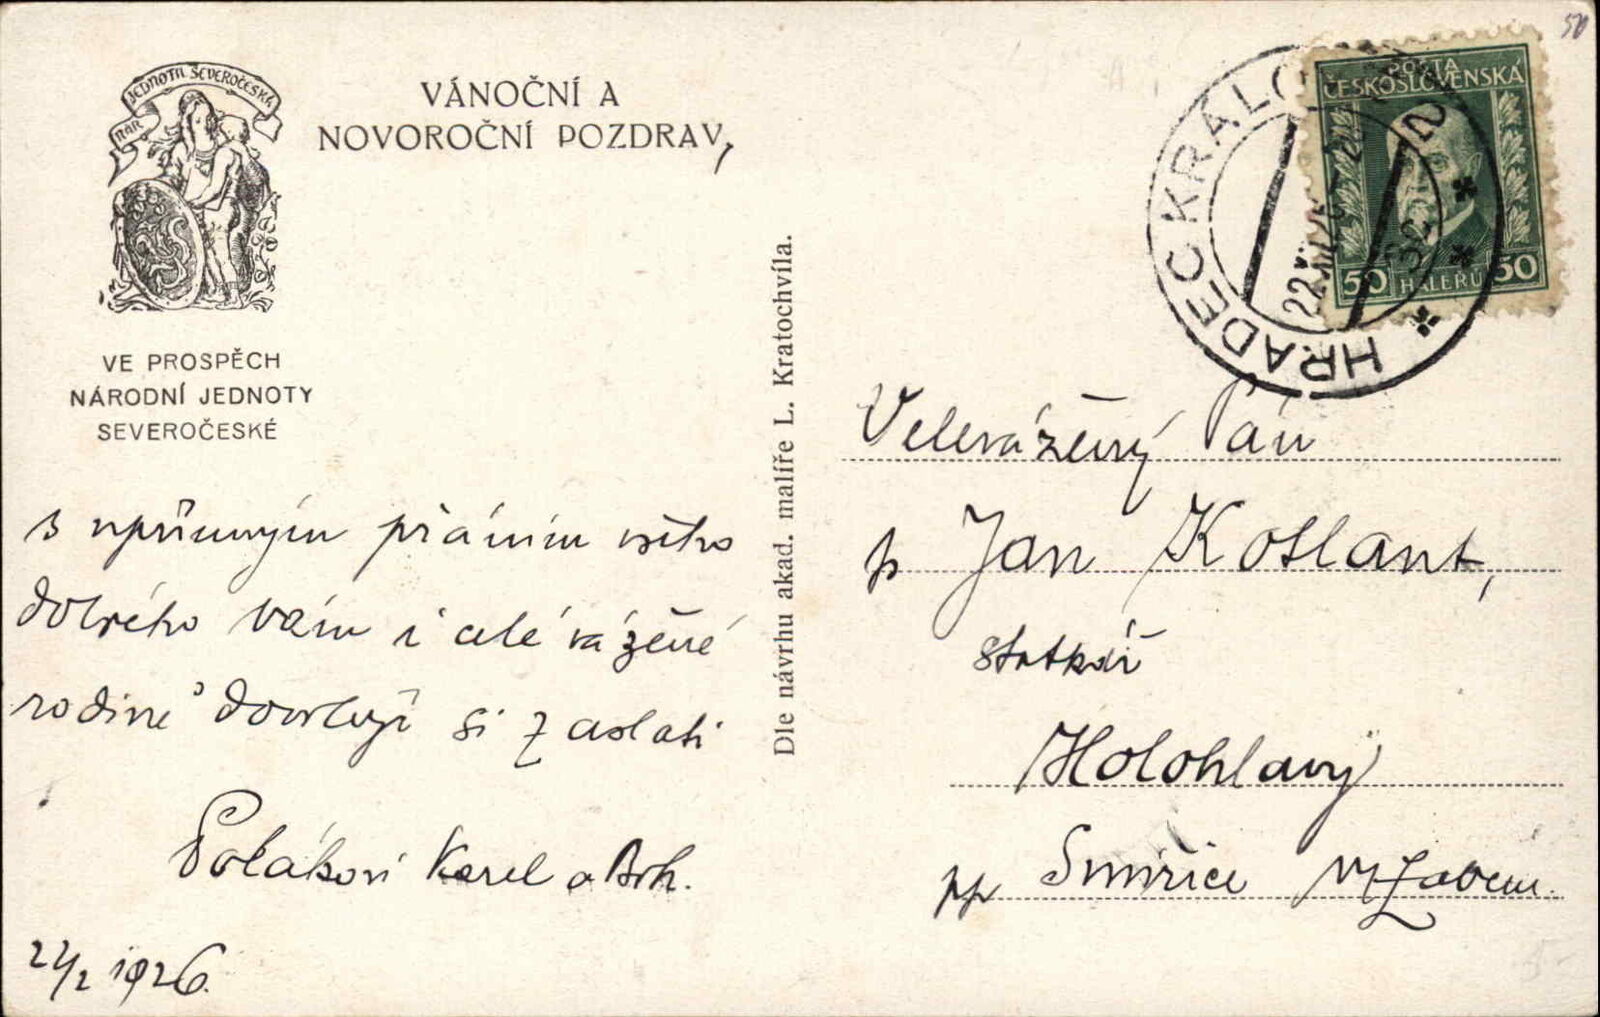 NÁR. JEDNOTA SEVEROČESKÁ
VÁNOČNÍ A
NOVOROČNÍ POZDRAV,
VE PROSPĚCH
NÁRODNÍ JEDNOTY
SEVEROČESKÉ
s upřímným přáním všeho
dobrého vám i celé vážené
rodině dovolují si zaslati
Polákovi Karel a Boh.
1926.
Dle návrhu akad. malíře L. Kratochvíla.
POŠTA
ČESKOSLOVENSKÁ
50 HALÉŘŮ 50
HRADEC KRÁLO
22.XII.26
2
50
Velevážený Pán
p Jan Koslant,
statkář
Holohlavy
pp Smiřice n/Labem.